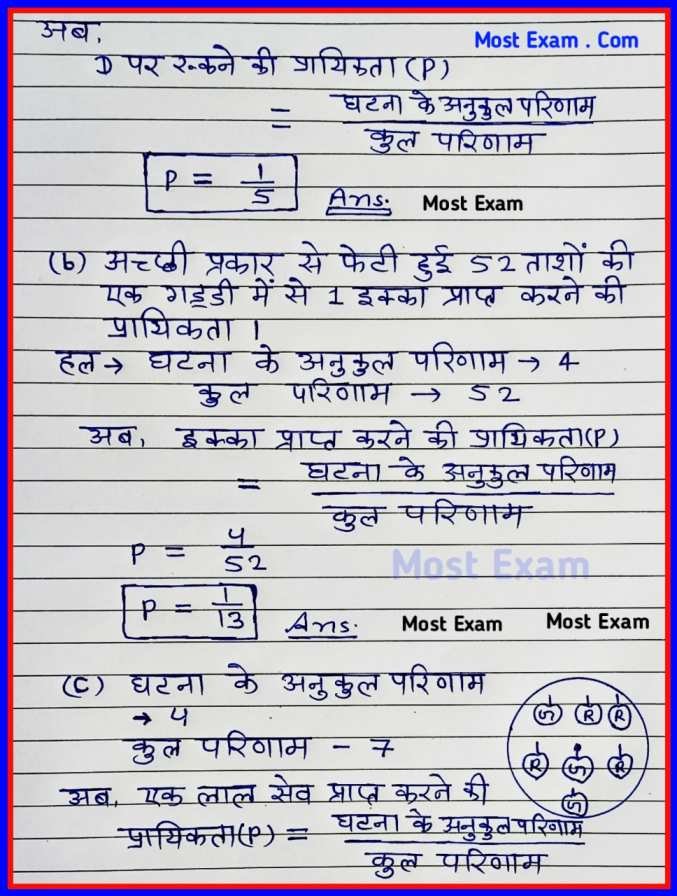 अब,
Most Exam . Com
D पर रुकने की प्रायिकता (P)
= घटना के अनुकुल परिणाम
कुल परिणाम
P = 1
5
Ans.
Most Exam
(b) अच्छी प्रकार से फेटी हुई 52 ताशों की
एक गड्डी में से 1 इक्का प्राप्त करने की
प्रायिकता ।
हल → घटना के अनुकुल परिणाम → 4
कुल परिणाम → 52
अब, इक्का प्राप्त करने की प्रायिकता(P)
= घटना के अनुकुल परिणाम
कुल परिणाम
P = 4
52
Most Exam
P = 1
13
Ans.
Most Exam
Most Exam
(C) घटना के अनुकुल परिणाम
→ 4
कुल परिणाम - 7
G R R
R G R
G
अब, एक लाल सेव प्राप्त करने की
प्रायिकता(P) = घटना के अनुकुल परिणाम
कुल परिणाम